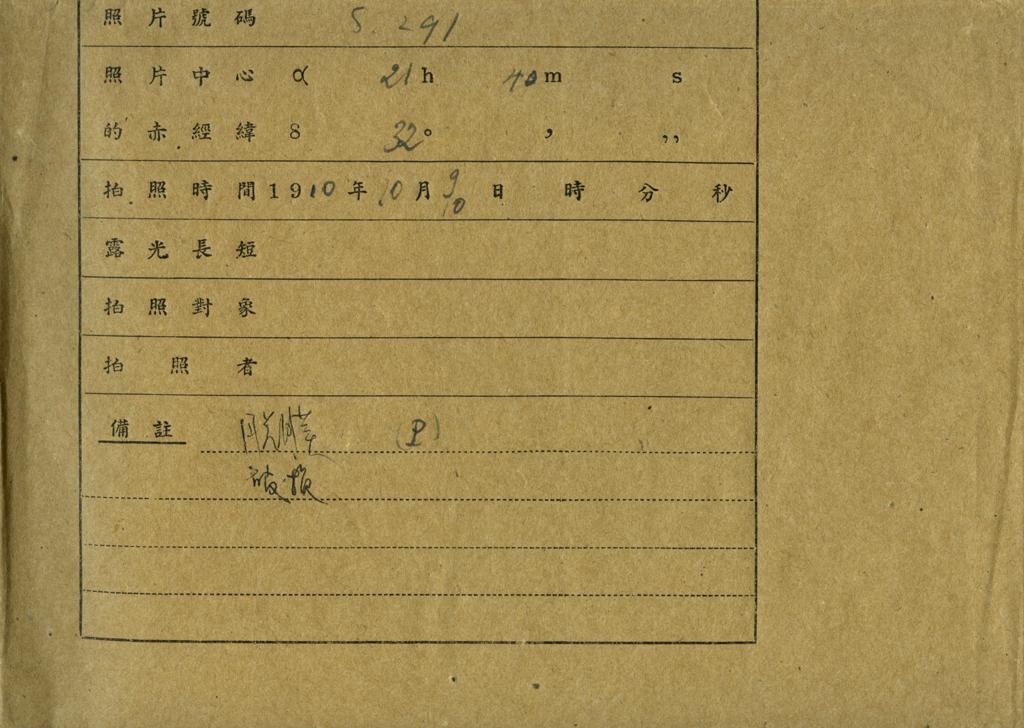 照片號碼 S. 291
照片中心 α 21h 40m s
的赤經緯 δ 32° ’ ’’
拍照時間1910年10月9/10日 時 分 秒
露光長短
拍照對象
拍照者
備註 脱膜 (P)
破损